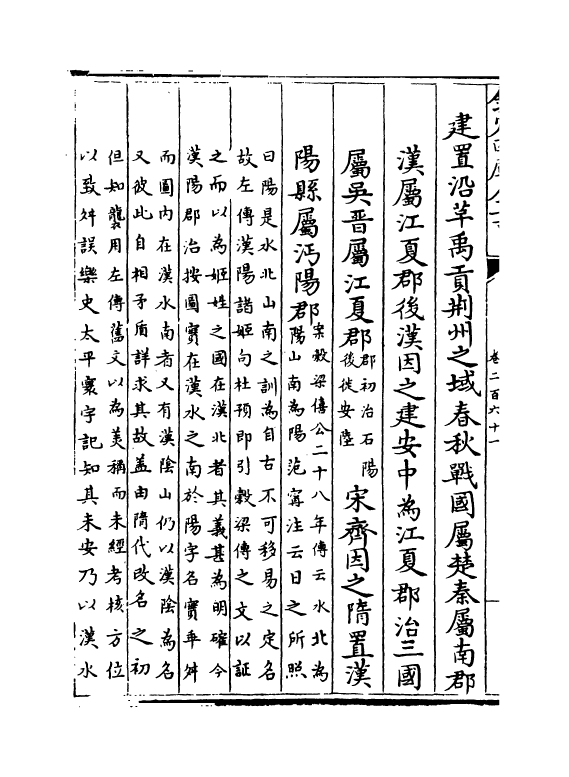 卷二百六十一
建置沿革禹貢荆州之域春秋戰國屬楚秦屬南郡
漢屬江夏郡後漢因之建安中為江夏郡治三國
屬吳晉屬江夏郡
郡初治石陽
後徙安陸
宋齊因之隋置漢
陽縣屬沔陽郡
案穀梁僖公二十八年傳云水北為
陽山南為陽范甯注云日之所照
曰陽是水北山南之訓為自古不可移易之定名
故左傳漢陽諸姬句杜預即引穀梁傳之文以証
之而以為姬姓之國在漢北者其義甚為明確今
漢陽郡治按圖實在漢水之南於陽字名實乖舛
而圖内在漢水南者又有漢陰山仍以漢陰為名
又彼此自相矛盾詳求其故蓋由隋代改名之初
但知襲用左傳舊文以為美稱而未經考核方位
以致舛誤樂史太平寰宇記知其未安乃以漢水